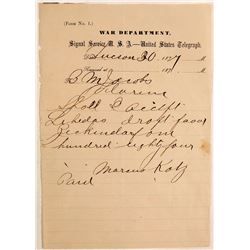 (Form No. 1.)
WAR DEPARTMENT,
Signal Service, U. S. A.—United States Telegraph.
Tucson 30 1877
Received at 187 , M
B M Jacobs
Florence
Shall I accept
draft favor
one
hundred eighty four
Marcus Katz
Paid